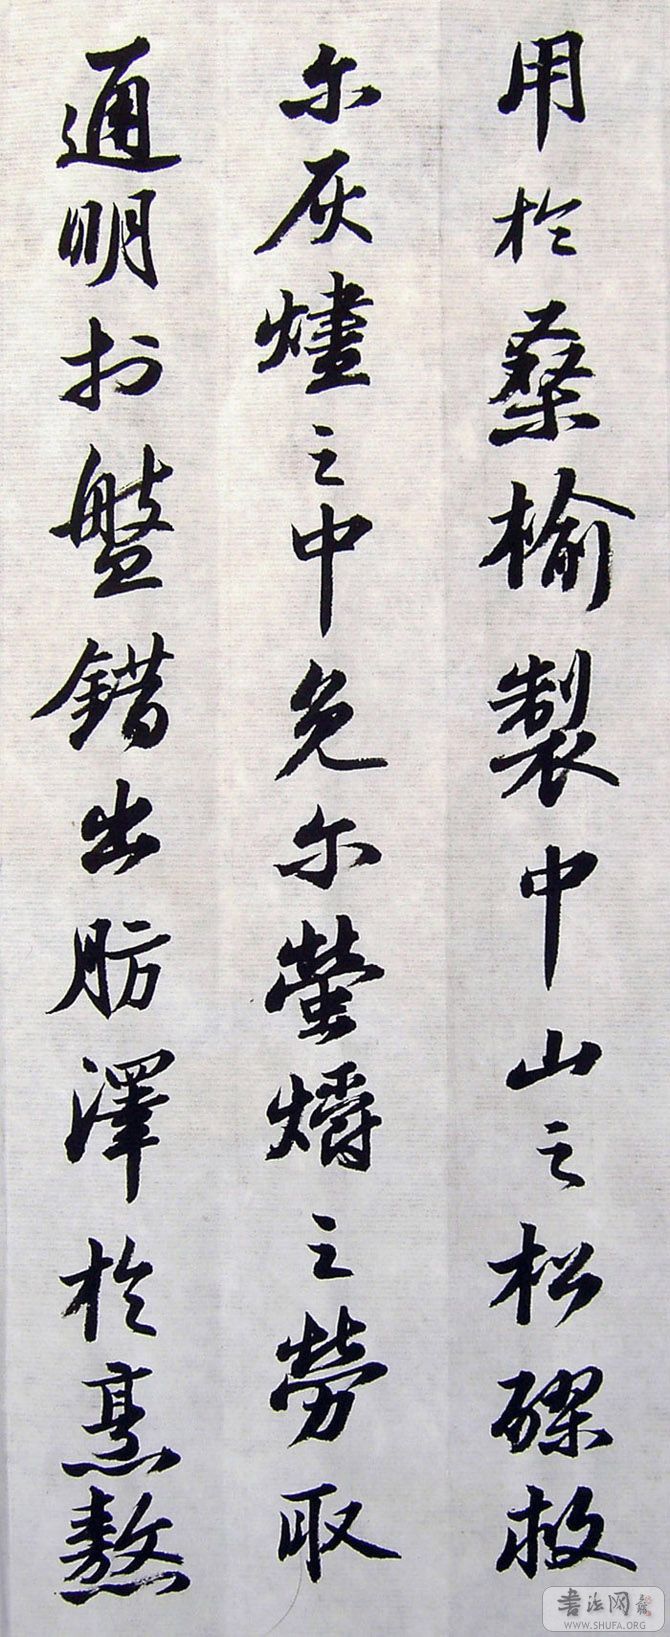 用於桑榆製中山之松醪救
尔灰燼之中免尔螢爝之勞取
通明於盤錯出肪澤於烹熬
書法网
WWW.SHUFA.ORG